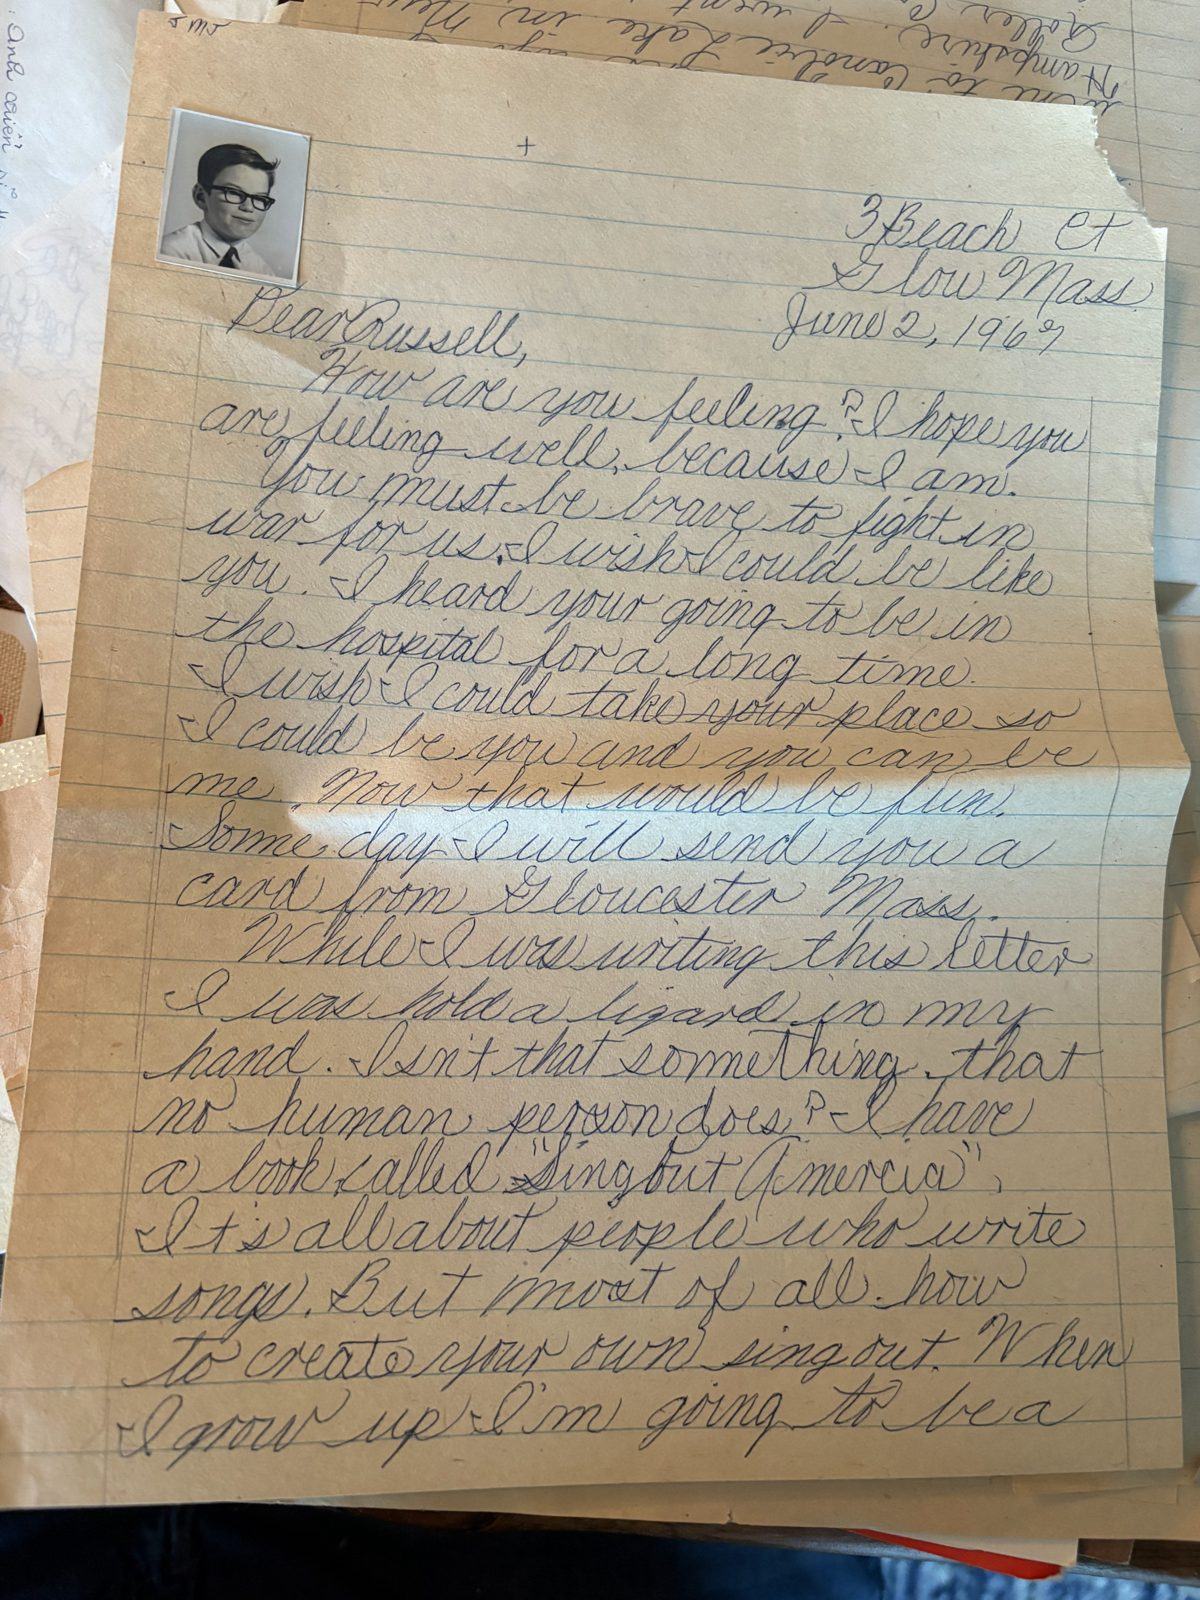 3 Beach Ct
Glow Mass.
June 2, 1967
Dear Russell,
How are you feeling? I hope you
are feeling well, because I am.
You must be brave to fight in
war for us. I wish I could be like
you. I heard your going to be in
the hospital for a long time.
I wish I could take your place so
I could be you and you can be
me. Now that would be fun.
Some day I will send you a
card from Gloucester Mass.
While I was writing this letter
I was hold a lizard in my
hand. Isn't that something that
no human person does? I have
a book called "Sing out Amercia",
It's all about people who write
songs. But most of all how
to create your own sing out. When
I grow up I'm going to be a
Hampshire. I went
to Canobie Lake in New